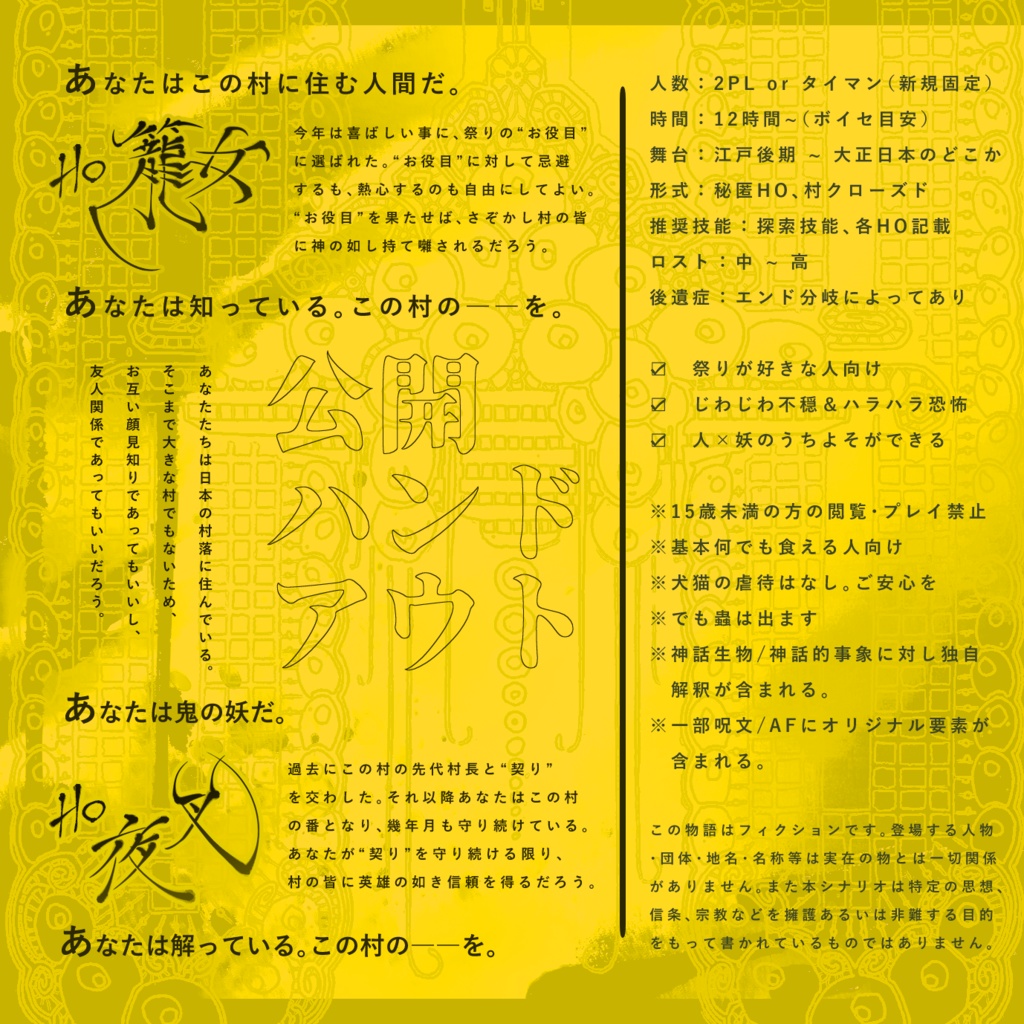 あなたはこの村に住む人間だ。
HO 籠女
今年は喜ばしい事に、祭りの“お役目”
に選ばれた。“お役目”に対して忌避
するも、熱心するのも自由にしてよい。
“お役目”を果たせば、さぞかし村の皆
に神の如し持て囃されるだろう。
あなたは知っている。この村の――を。
公開
ハンド
アウト
あなたたちは日本の村落に住んでいる。
そこまで大きな村でもないため、
お互い顔見知りであってもいいし、
友人関係であってもいいだろう。
あなたは鬼の妖だ。
HO 夜叉
過去にこの村の先代村長と“契り”
を交わした。それ以降あなたはこの村
の番となり、幾年月も守り続けている。
あなたが“契り”を守り続ける限り、
村の皆に英雄の如き信頼を得るだろう。
あなたは解っている。この村の――を。
人数：2PL or タイマン（新規固定）
時間：12時間~（ボイセ目安）
舞台：江戸後期 ~ 大正日本のどこか
形式：秘匿HO、村クローズド
推奨技能：探索技能、各HO記載
ロスト：中 ~ 高
後遺症：エンド分岐によってあり
☑ 祭りが好きな人向け
☑ じわじわ不穏＆ハラハラ恐怖
☑ 人×妖のうちよそができる
※15歳未満の方の閲覧・プレイ禁止
※基本何でも食える人向け
※犬猫の虐待はなし。ご安心を
※でも蟲は出ます
※神話生物/神話的事象に対し独自
解釈が含まれる。
※一部呪文/AFにオリジナル要素が
含まれる。
この物語はフィクションです。登場する人物
・団体・地名・名称等は実在の物とは一切関係
がありません。また本シナリオは特定の思想、
信条、宗教などを擁護あるいは非難する目的
をもって書かれているものではありません。